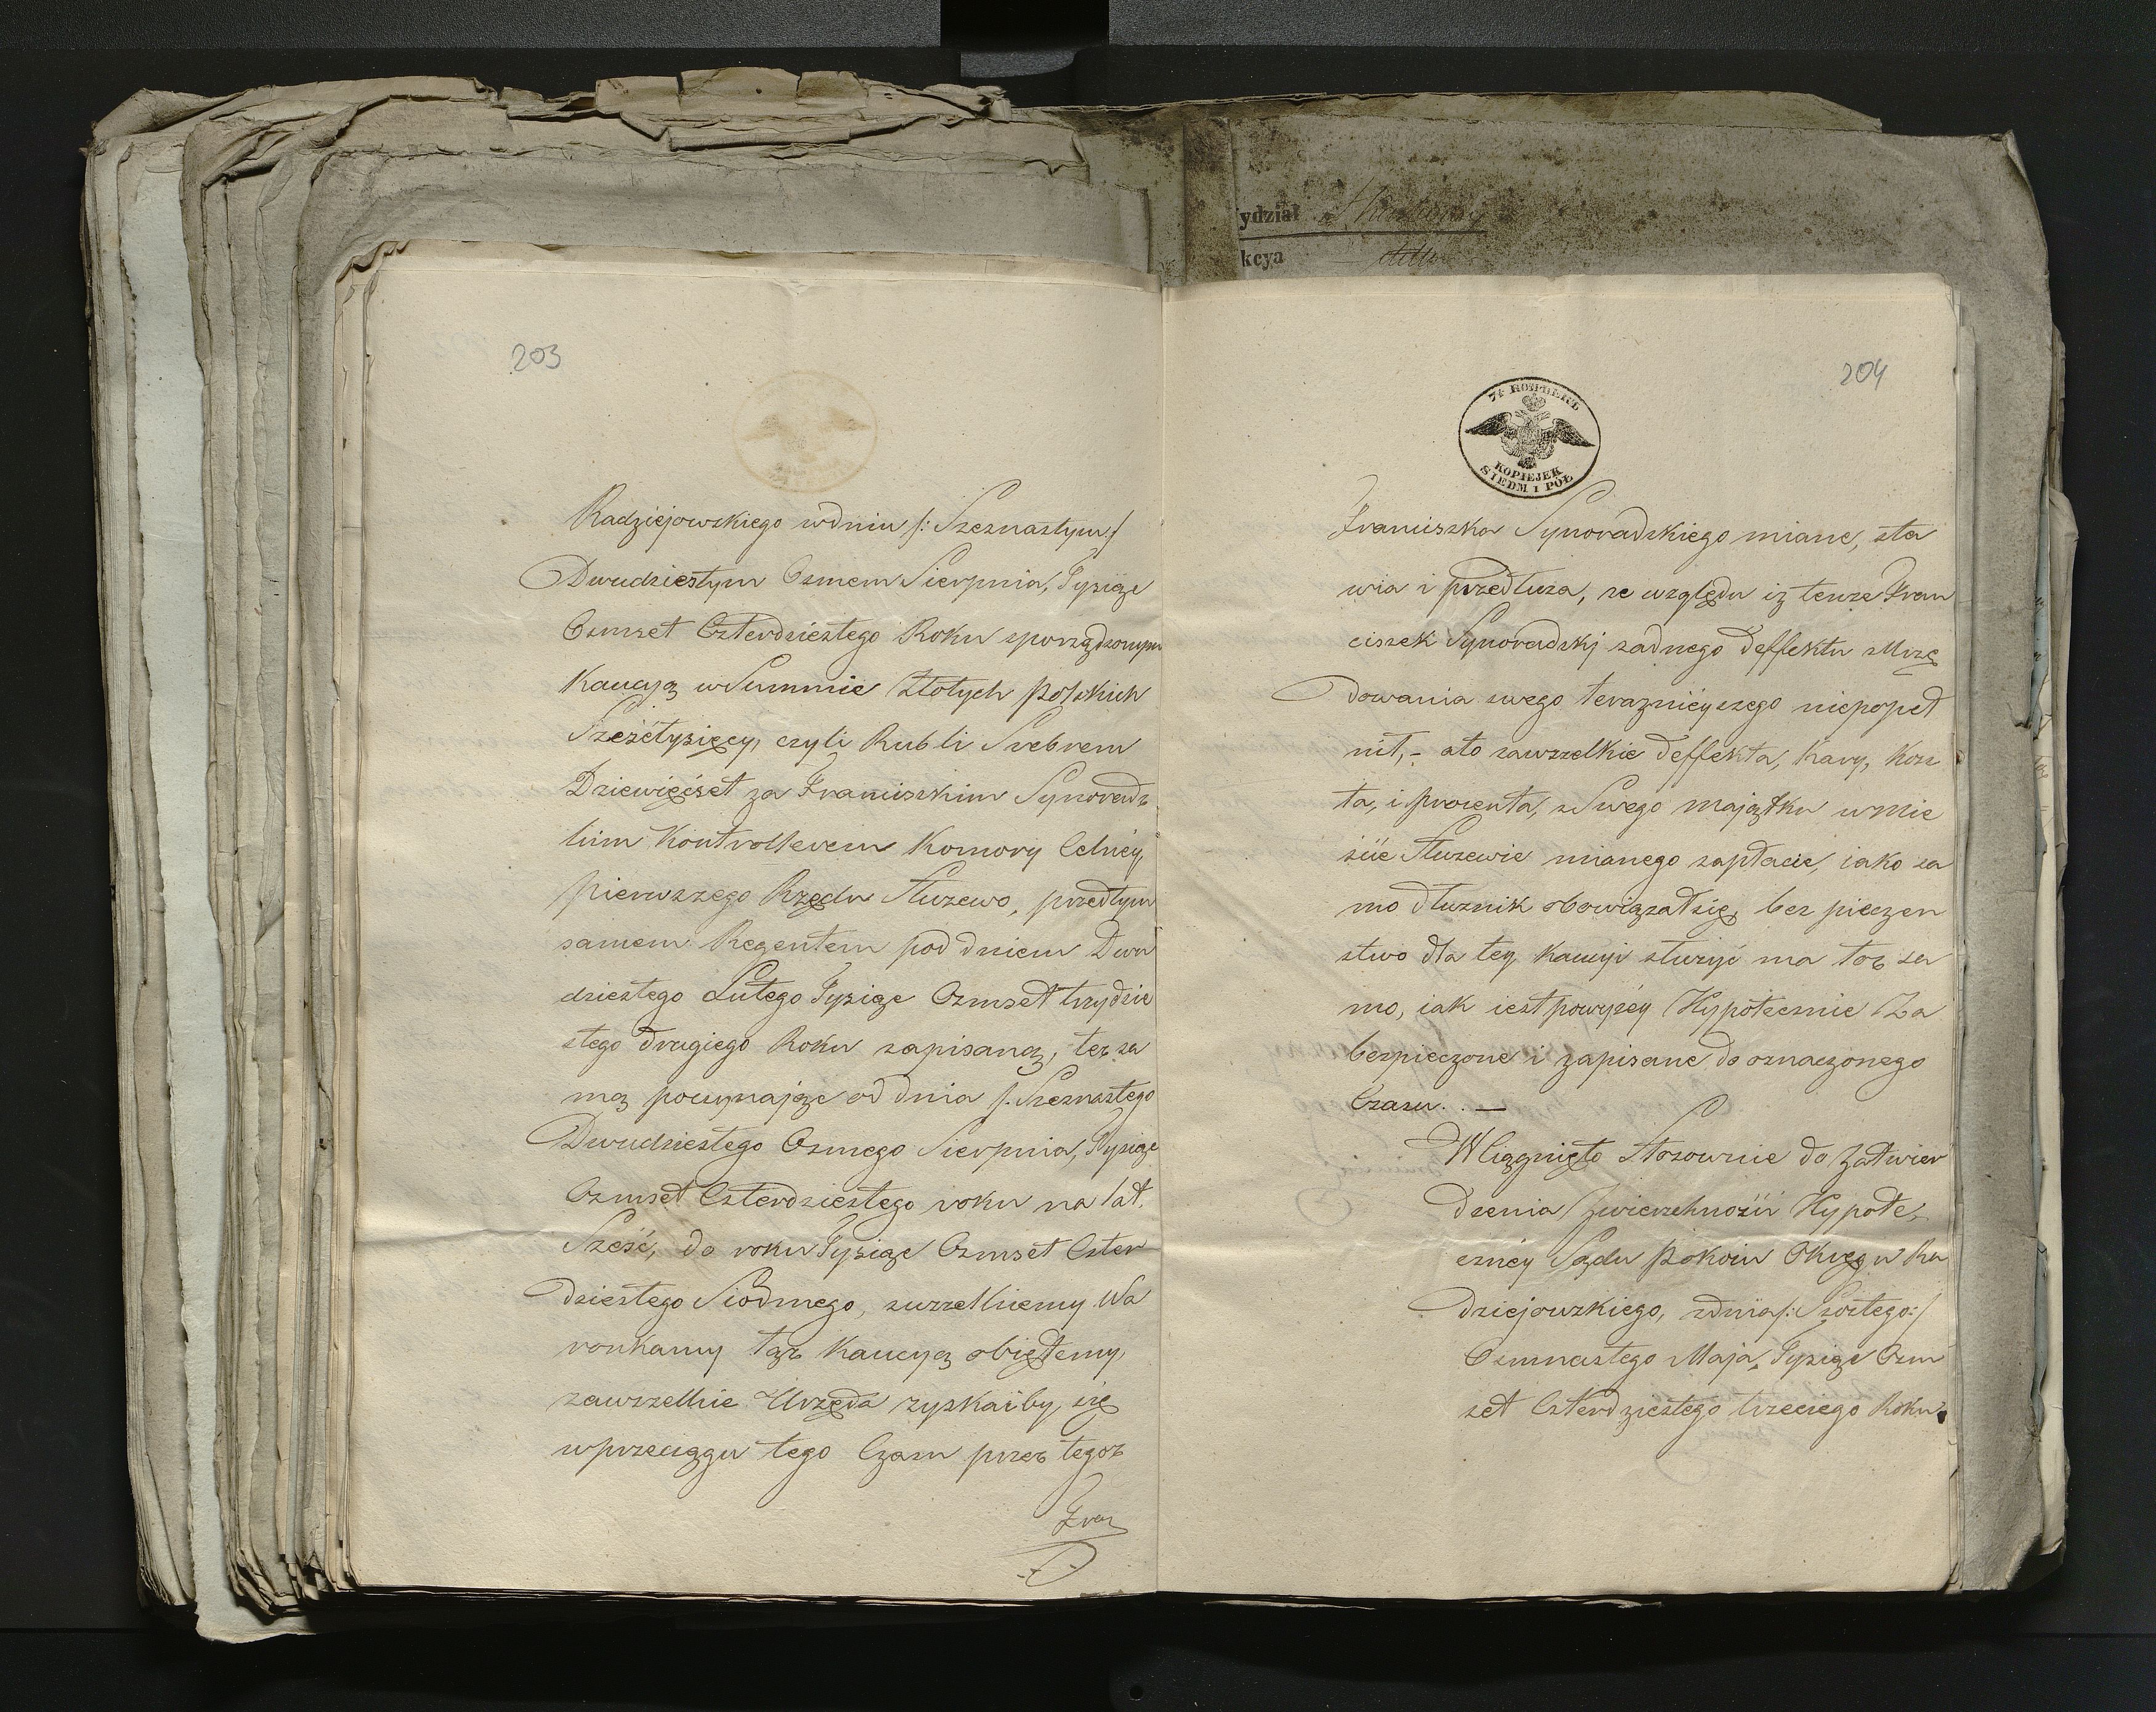 ydział
kcya
203
Radziejowskiego w dniu /: Szesnastym /
Dwudziestym Osmem Sierpnia, Tysiąc
Osmset Czterdziestego Roku sporządzonym
Kaucyą w Summie Złotych polskich
Sześćtysięcy, czyli Rubli Srebrem
Dziewięćset za Franciszkim Synoradz
kim Kontrollerem Komory Celnéy
pierwszego Rzędu Służewo, przedtym
samem Regentem pod dniem Dwu
dziestego Lutego Tysiąc Osmset trzydzie
stego drugiego Roku zapisaną, też sa
mą poczynając od dnia /: Szesnastego
Dwudziestego Osmego Sierpnia, Tysiąc
Osmset Czterdziestego roku na lat.
Sześć, do roku Tysiąc Osmset Czter
dziestego Siodmego, zwszelkiemy Wa
ronkamy tąż Kaucyą obiętemy,
zawszelkie Urzęda zyskaćby się
wprzeciągu tego Czasu przez tegoż
Fran
204
7½ КОПѢЕКЪ
KOPIEJEK
SIEDM I PÓŁ
Franciszka Synoradskiego miane, sta
wia i przedłuża, ze względu iż tenże Fran
ciszek Synoradskj zadnego deffektu z Urzę
dowania swego teraznièyszego niepopeł
nił, - ato zawszelkie deffekta, Kary, Kosz
ta, i procenta, z Swego majątku w Mie
scie Służewie mianego zapłacic, iako sa
mo dłużnik obowiązał się, bez pieczen
stwo dla tey Kaucyi służyć ma toż sa
mo, iak iest powyżéy Hypotecznie Za
bezpieczone i zapisane do oznaczonego
Czasu. . —
Wciągnięto Stosownie do Zatwier
dzenia Zwierzchności Hypote,
cznéy Sądu Pokoiu Okręgu Ra
dziejowskiego, zdnia /: Szostego: /
Osmnastego Maja, Tysiąc Osm
set Czterdziestego trzeciego Roku.